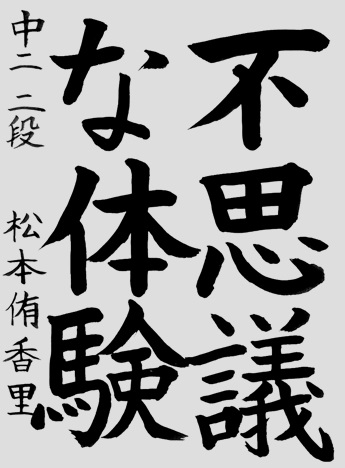 不思議
な体験
中二 二段 松本侑香里